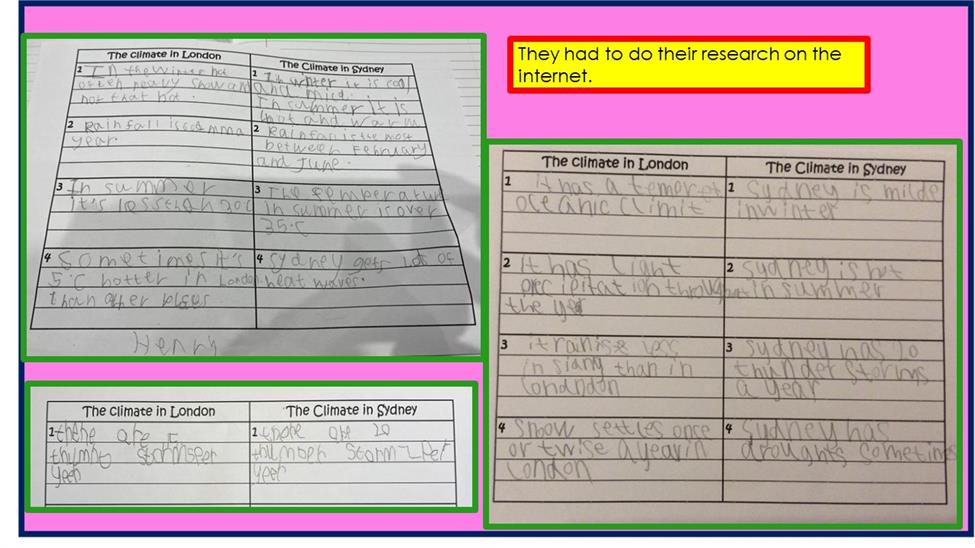 They had to do their research on the
internet.
The climate in London
The Climate in Sydney
1 In the winter not
often heavy snow and
not that hot.
1 In winter it is cool
and mild.
In summer it is
hot and warm
2 Rainfall is
year.
2 Rainfall is the most
between February
and June.
3 In summer
it's less than 20c
3 The temperatur
in summer is over
35°C
4 Sometimes it's
5°C hotter in London
than other
4 Sydney gets lots of
heat waves.
Henry
The climate in London
The Climate in Sydney
1 it has a
oceanic climit
1 Sydney is milde
in winter
2 it has light
precipitation
the year
2 Sydney is hot
in summer
3 less
in than in
3 Sydney has 20
thunder storms
a year
4 Snow settles once
or twise a year in
London
4 Sydney has
droughts sometimes
The climate in London
The Climate in Sydney
1 there are
year
1 there are 20
storm
year